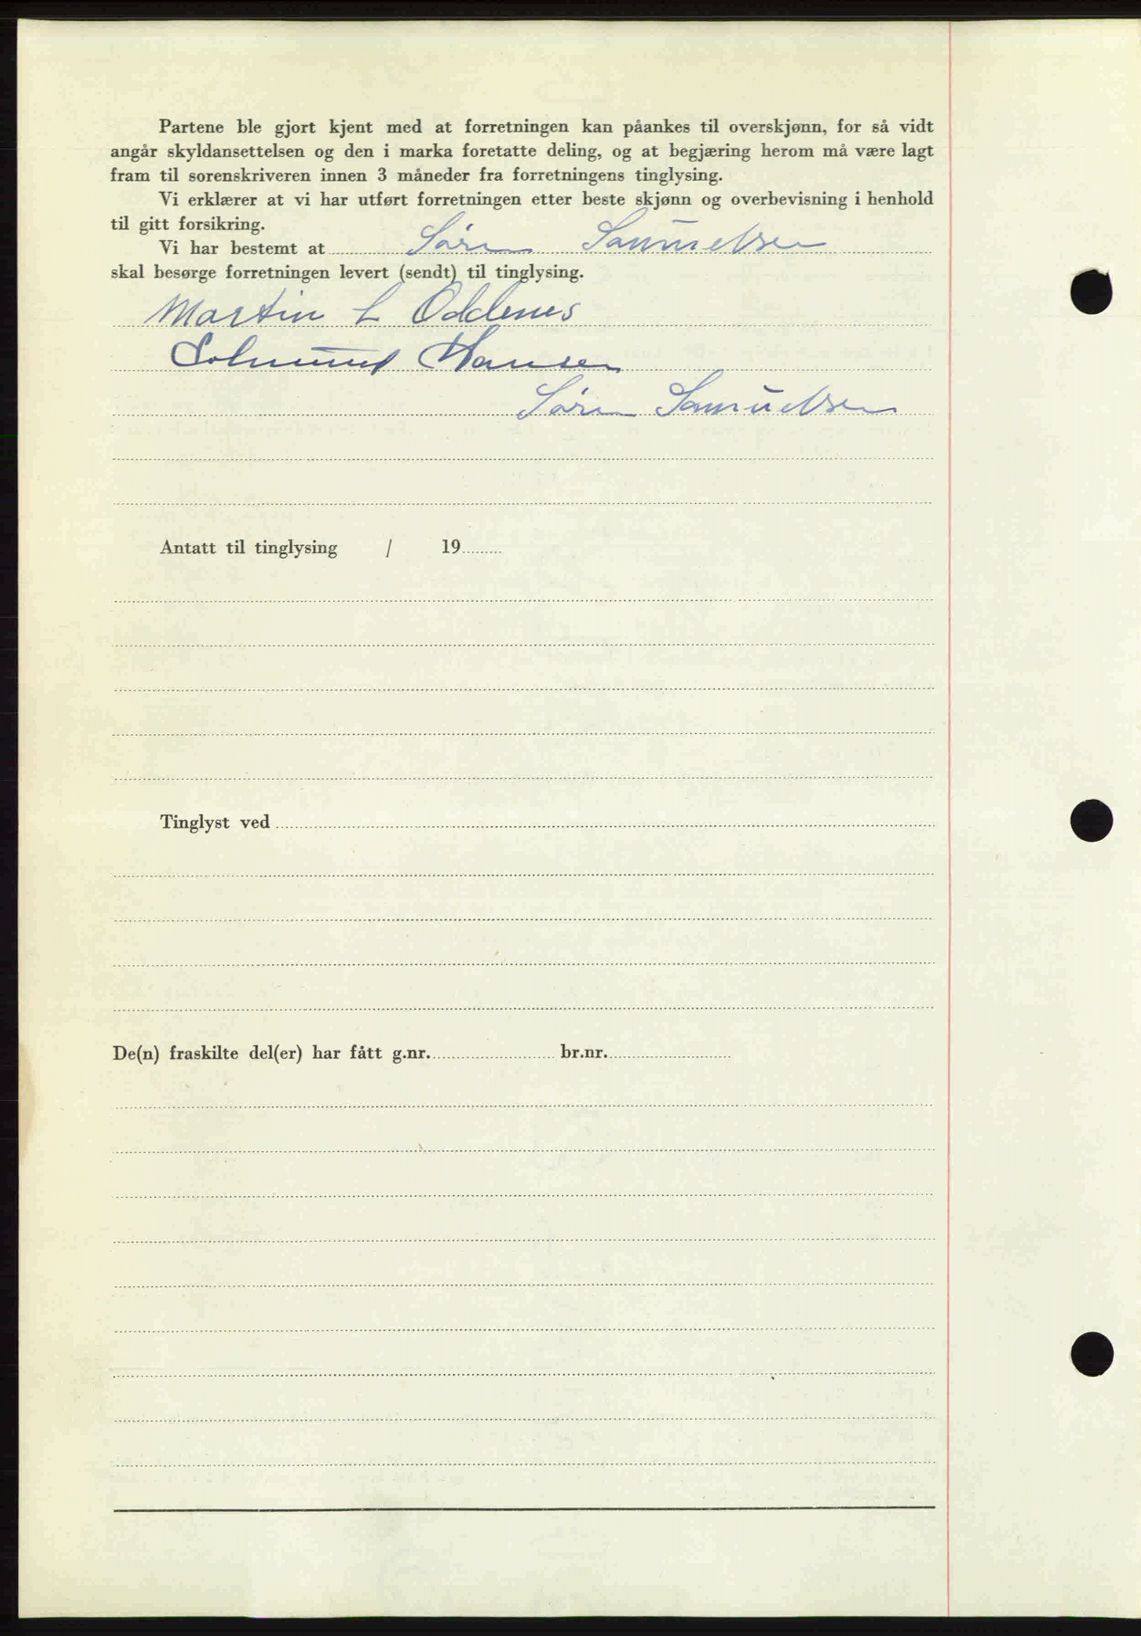 Partene ble gjort kjent med at forretningen kan påankes til overskjønn, for så vidt
angår skyldansettelsen og den i marka foretatte deling, og at begjæring herom må være lagt
fram til sorenskriveren innen 3 måneder fra forretningens tinglysing.
Vi erklærer at vi har utført forretningen etter beste skjønn og overbevisning i henhold
til gitt forsikring.
Vi har bestemt at Søren Samuelsen
skal besørge forretningen levert (sendt) til tinglysing.
Martin L Oddenes
Solmund Hansen
Søren Samuelsen
Antatt til tinglysing / 19
Tinglyst ved
De(n) fraskilte del(er) har fått g.nr. br.nr.